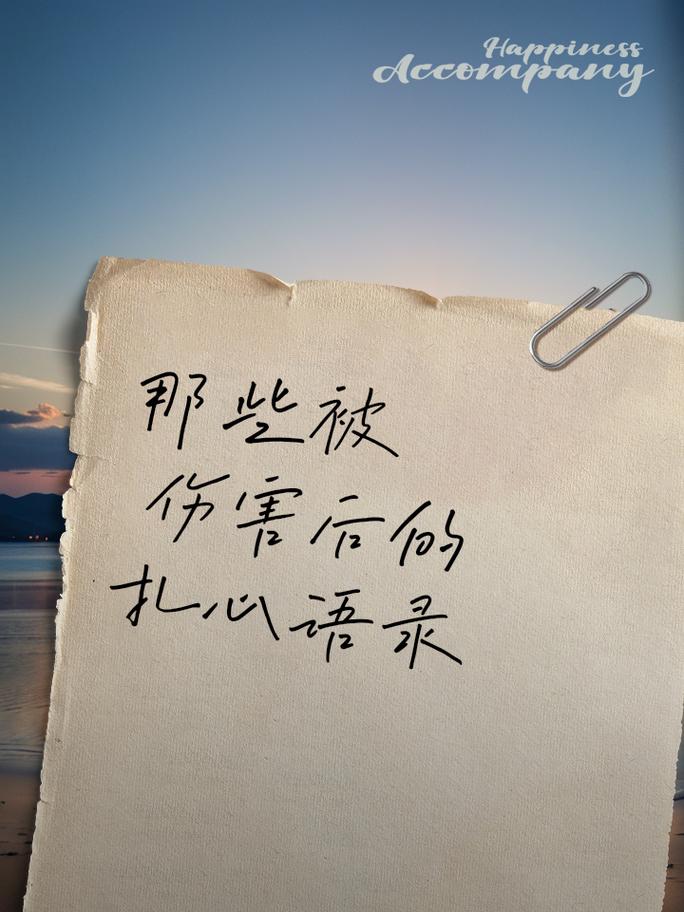 Happiness
Accompany
那些被
伤害后的
扎心语录